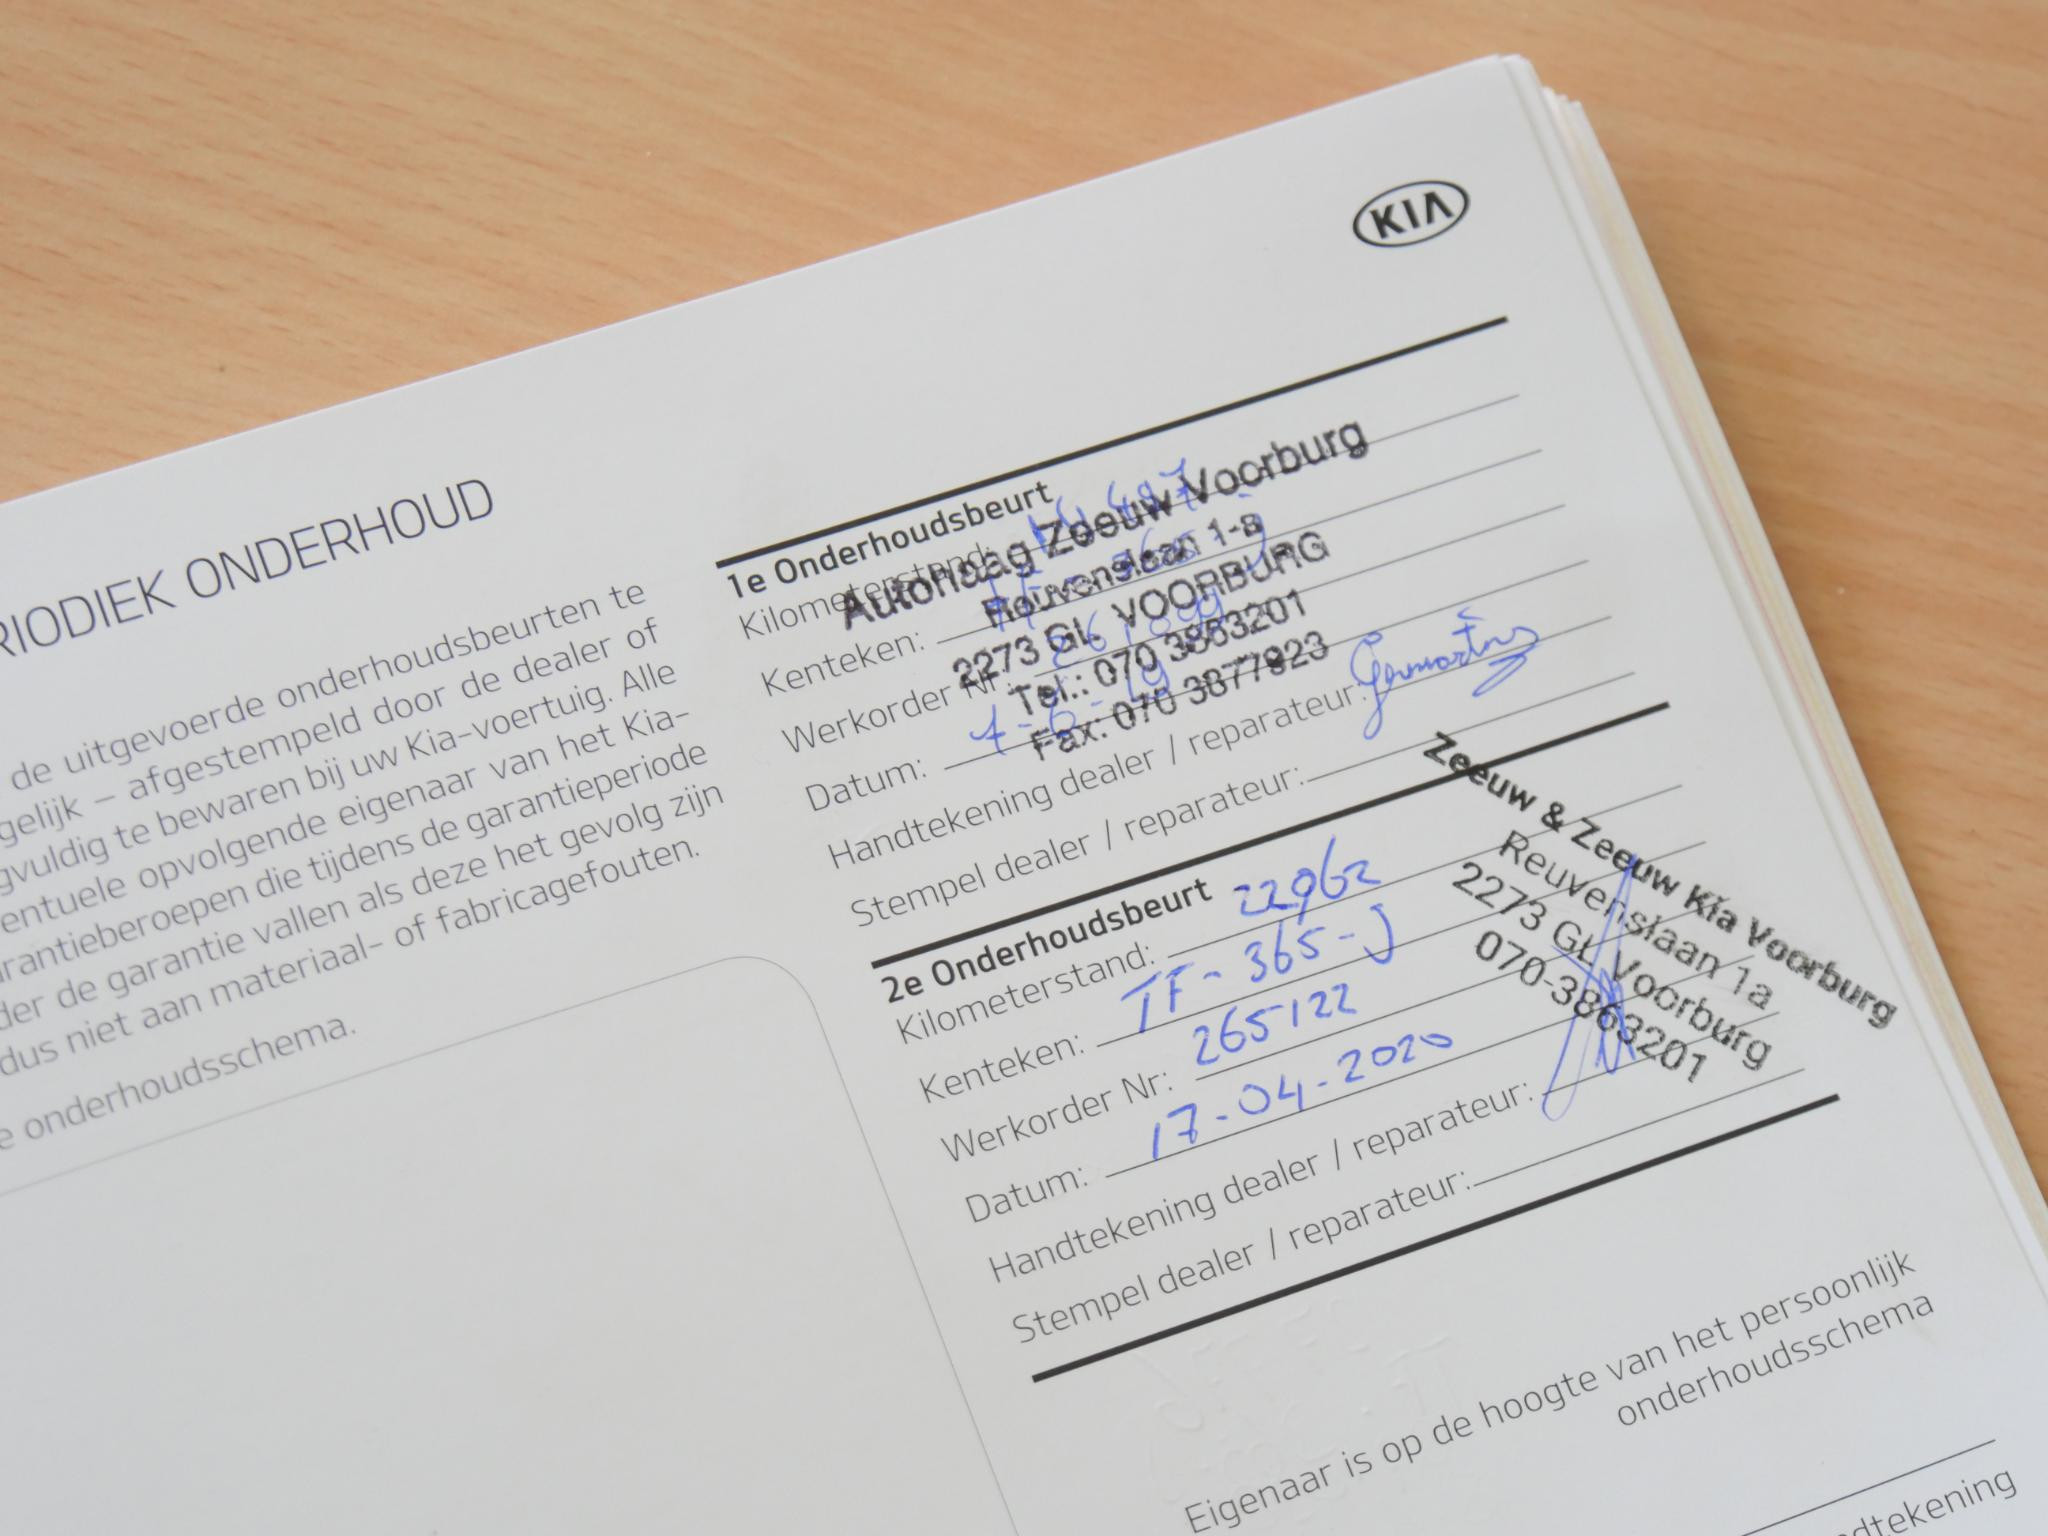 KIA
ONDERHOUD
de uitgevoerde onderhoudsbeurten te
– afgestempeld door de dealer of
te bewaren bij uw Kia-voertuig. Alle
opvolgende eigenaar van het Kia-
die tijdens de garantieperiode
der de garantie vallen als deze het gevolg zijn
dus niet aan materiaal- of fabricagefouten.
e onderhoudsschema.
1e Onderhoudsbeurt
Kilometerstand:
Kenteken:
Werkorder Nr:
Datum:
Handtekening dealer / reparateur:
Stempel dealer / reparateur:
Zeeuw Voorburg
Reuvenslaan 1-a
2273 GL VOORBURG
Tel.: 070 3863201
Fax: 070 3877823
2e Onderhoudsbeurt
Kilometerstand: 22962
Kenteken: TF-365-J
Werkorder Nr: 265122
Datum: 17-04-2020
Handtekening dealer / reparateur:
Stempel dealer / reparateur:
Zeeuw & Zeeuw Kia Voorburg
Reuvenslaan 1a
2273 GL Voorburg
070-3863201
Eigenaar is op de hoogte van het persoonlijk
onderhoudsschema